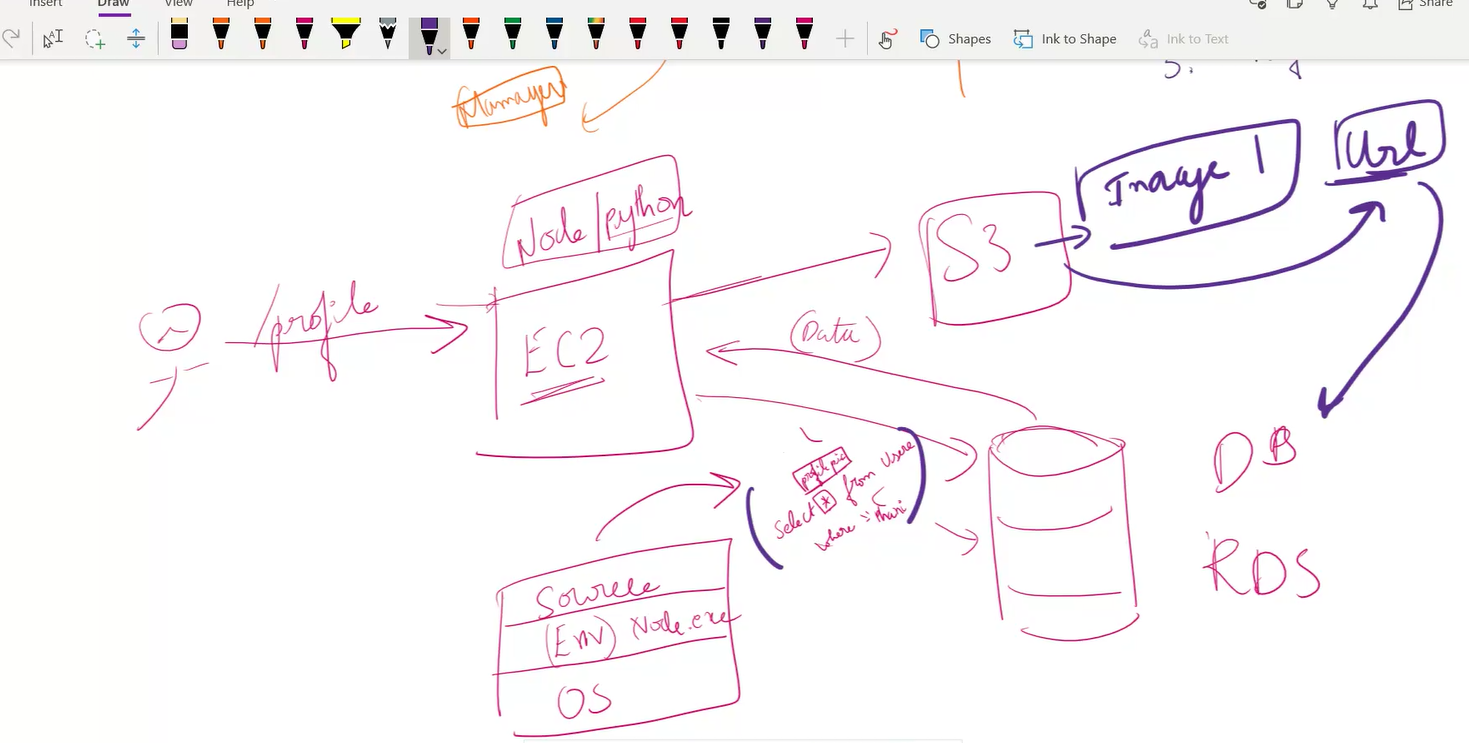 Insert Draw View Help Share
Shapes Ink to Shape Ink to Text
Manager
Image 1
Url
Node/python
S3
/profile
EC2
(Data)
profile pic
Select * from Users
where =
DB
RDS
Source
(Env) Node.exe
OS